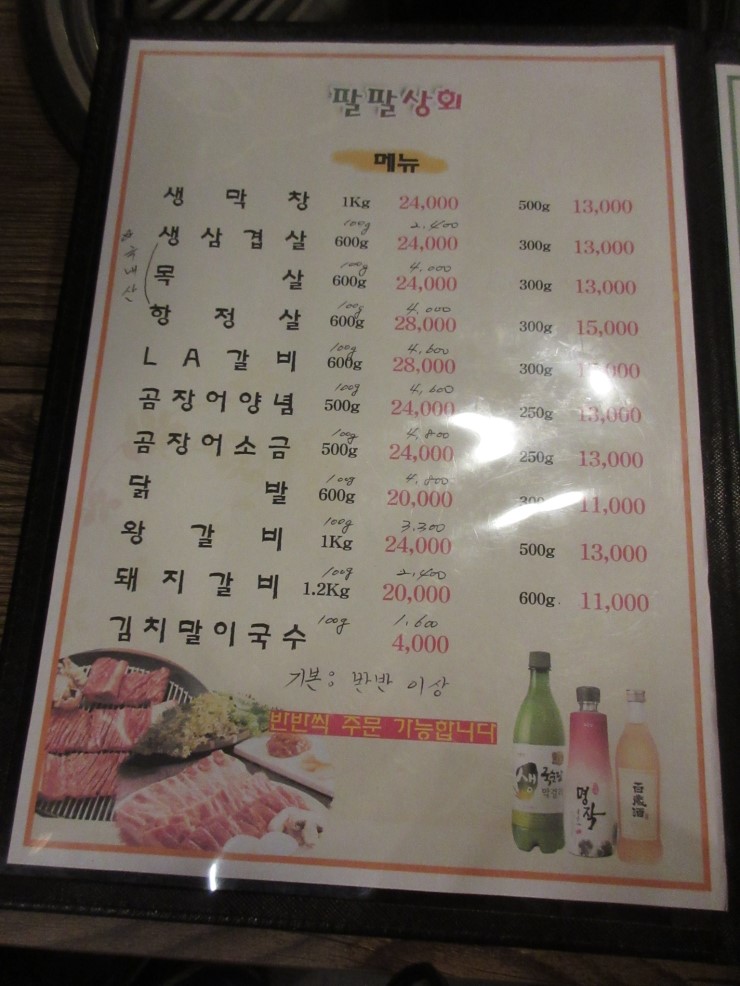 팔팔상회
메뉴
생 막 창 1Kg 24,000 500g 13,000
100g 2.400
생 삼 겹 살 600g 24,000 300g 13,000
국내산
100g 4.000
목 살 600g 24,000 300g 13,000
100g 4.000
항 정 살 600g 28,000 300g 15,000
100g 4.600
L A 갈 비 600g 28,000 300g
100g 4.600
곰 장 어 양 념 500g 24,000 250g 13,000
100g 4.800
곰 장 어 소 금 500g 24,000 250g 13,000
100g 4.800
닭 발 600g 20,000 300g 11,000
100g 3.300
왕 갈 비 1Kg 24,000 500g 13,000
100g 2.400
돼 지 갈 비 1.2Kg 20,000 600g 11,000
100g 1.600
김치말이국수 4,000
기본: 반반 이상
반반씩 주문 가능합니다
생 국순당
막걸리
명작
百歲酒